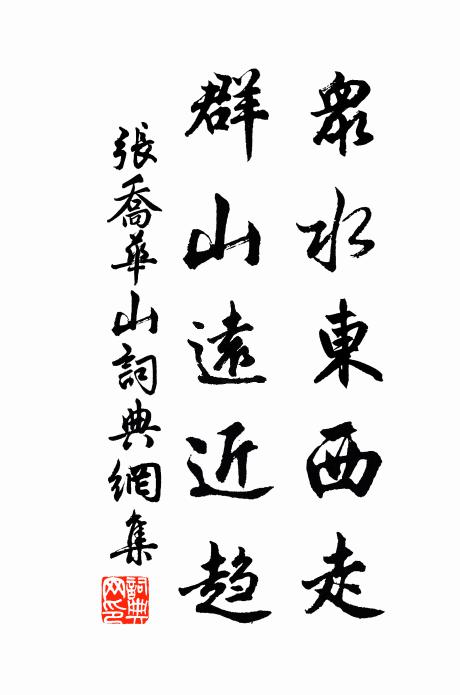 眾水東西走
群山遠近趨
張喬華山詞典網集
詞典網印